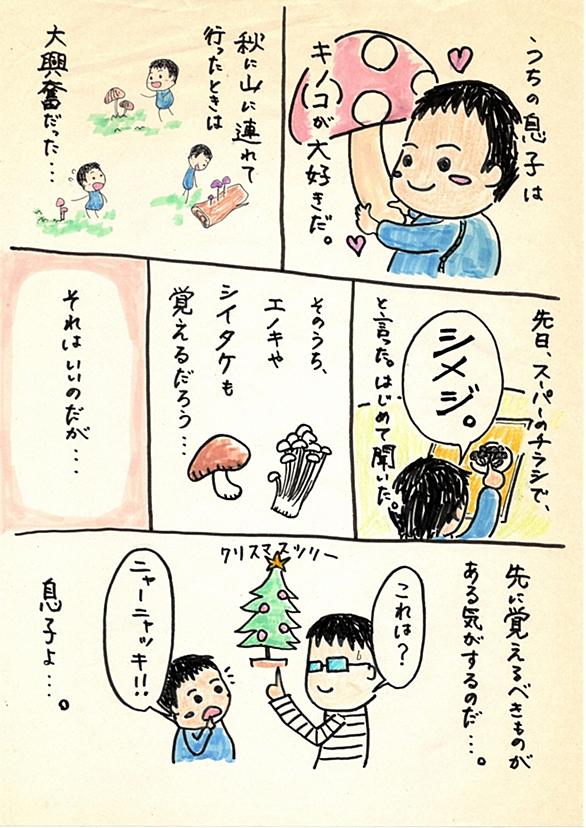 うちの息子は
キノコが大好きだ。
秋に山に連れて
行ったときは
大興奮だった・・・
先日、スーパーのチラシで、
シメジ。
と言った。はじめて聞いた。
そのうち、
エノキや
シイタケも
覚えるだろう・・・
それはいいのだが・・・
先に覚えるべきものが
ある気がするのだ・・・。
これは?
クリスマスツリー
ニャーニャッキ!!
息子よ・・・。